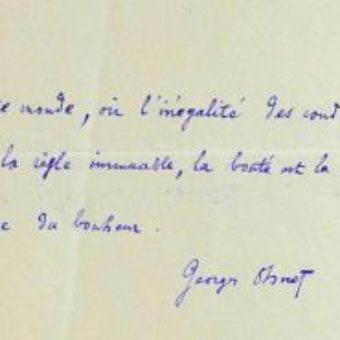 ce monde, où l'inégalité des cond
la règle immuable, la bonté est la
e du bonheur.
Georges Ohnet